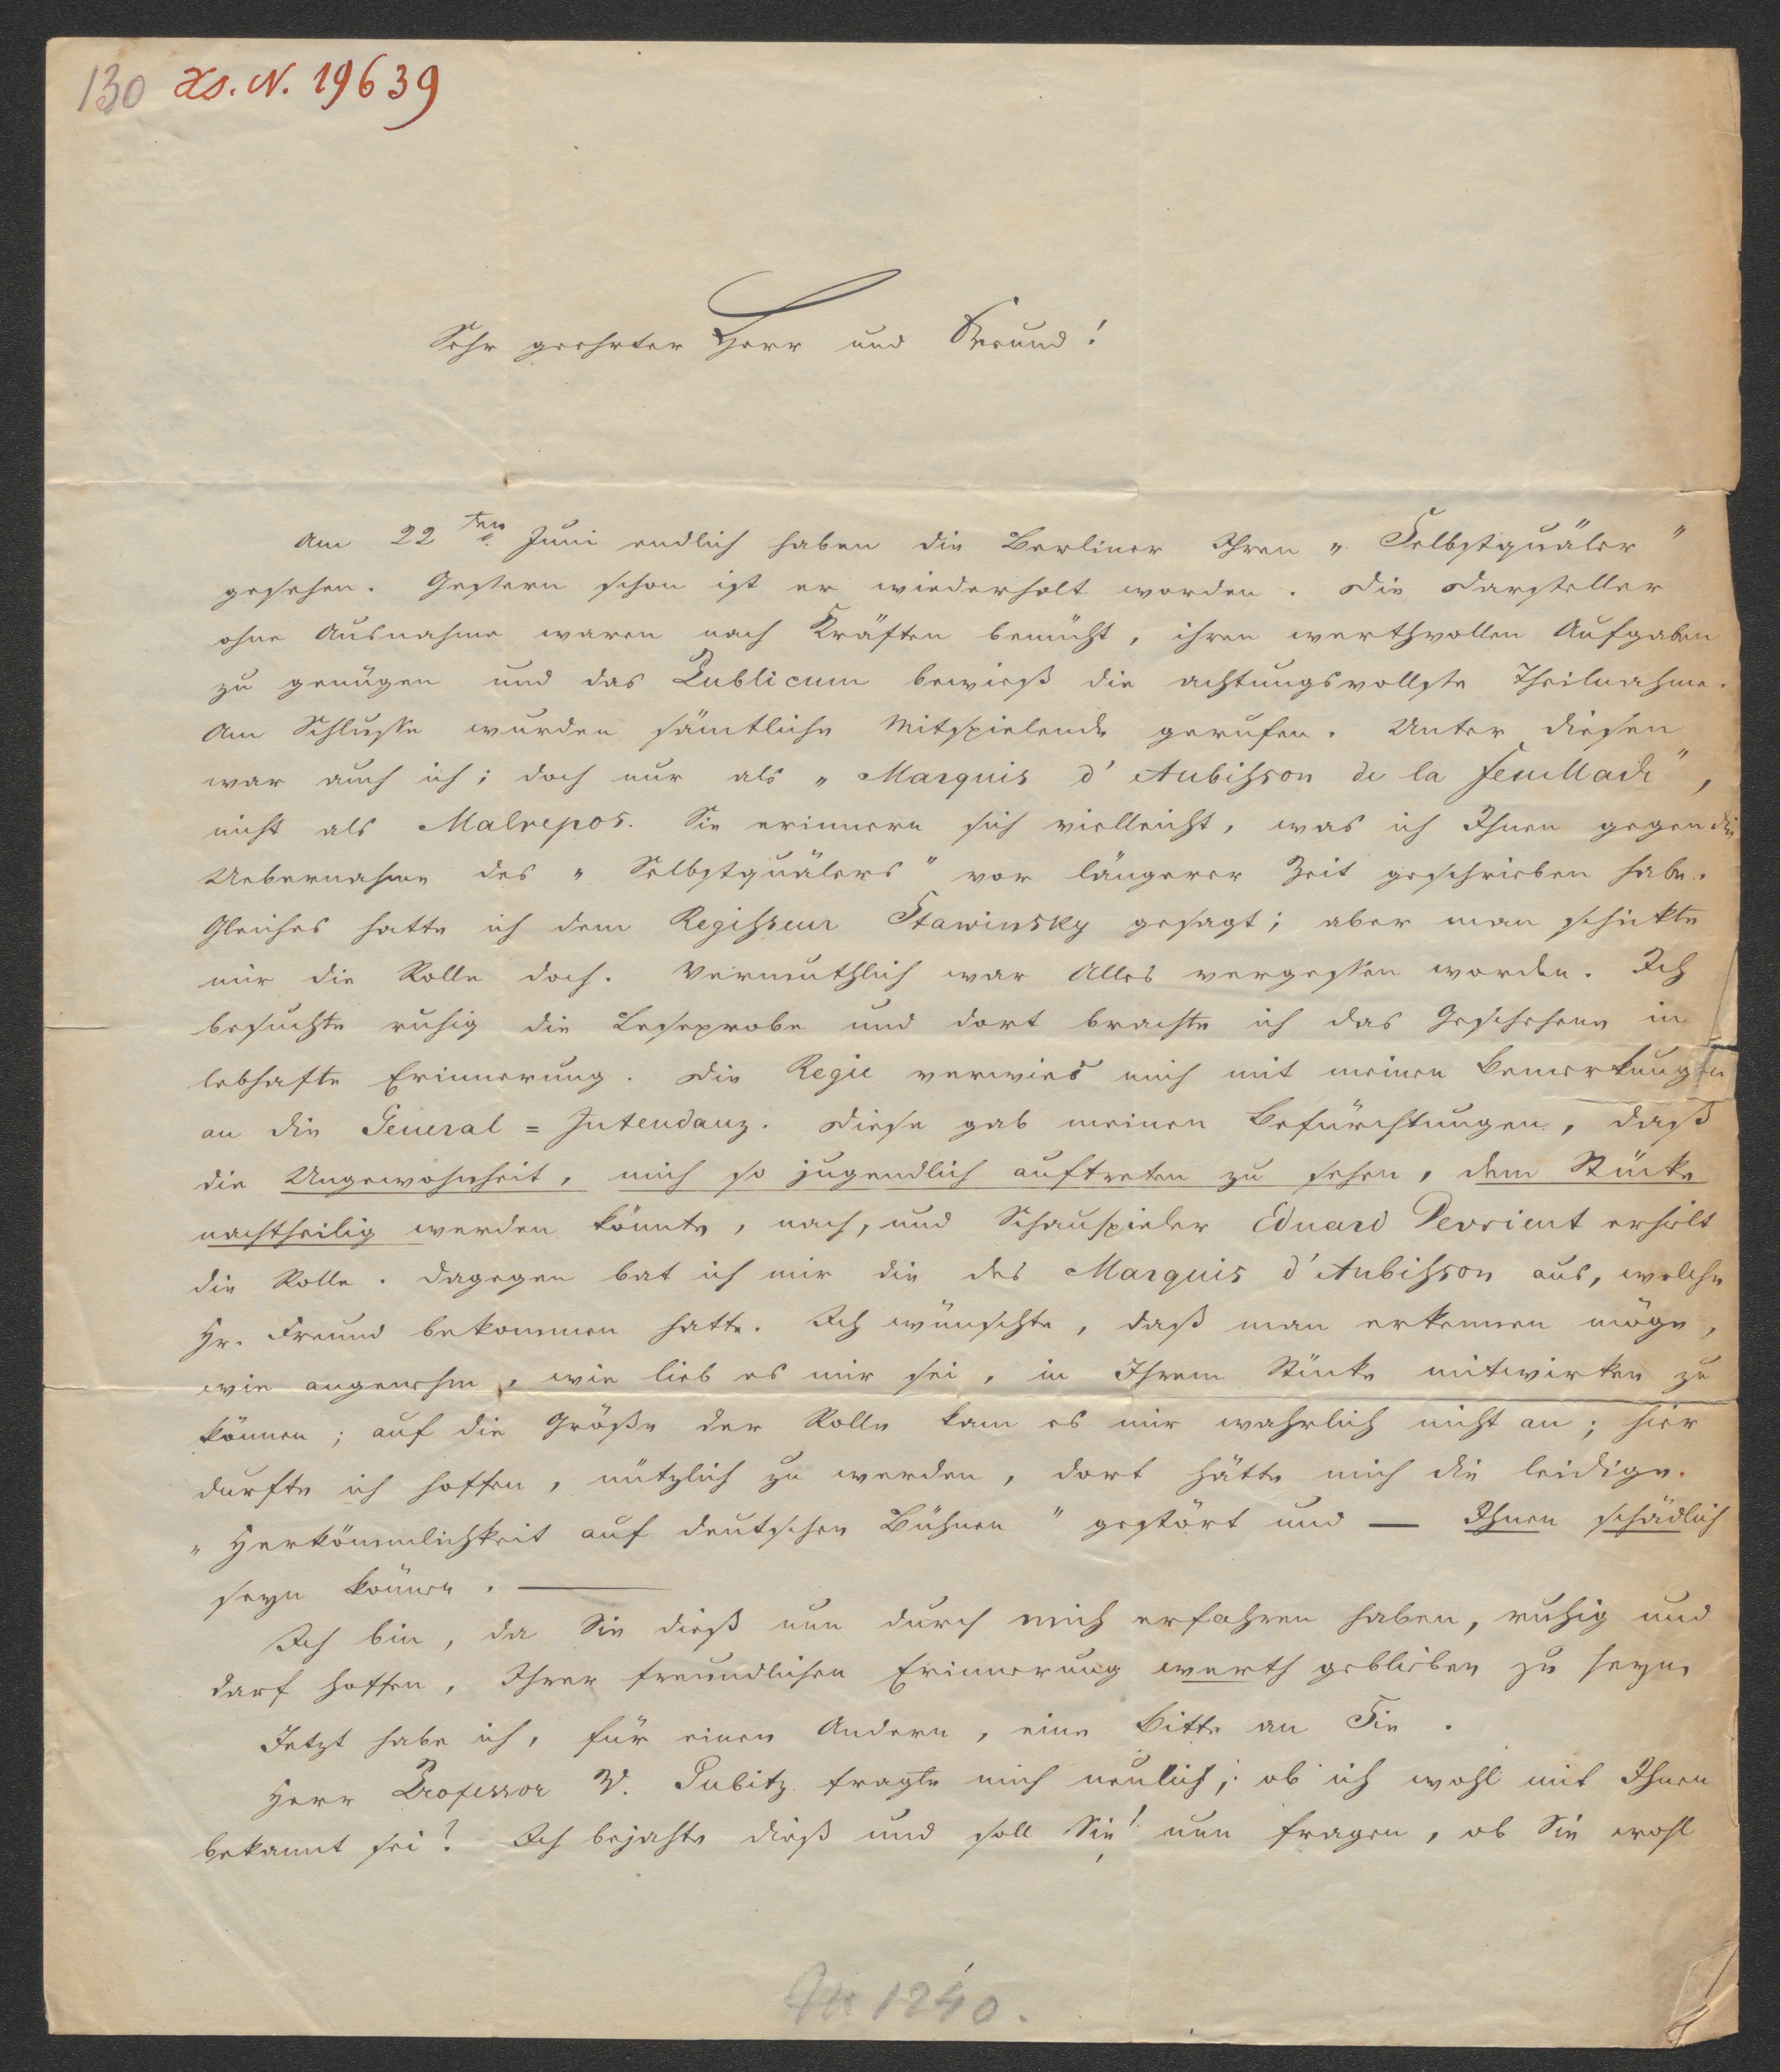 130 Hs. N. 19639
Sehr geehrter Herr und Freund!
Am 22ten Juni endlich haben die Berliner Ihren „Selbstquäler"
gesehen. Gestern schon ist er wiederholt worden. Die Darsteller
ohne Ausnahme waren nach Kräften bemüht, ihren werthvollen Aufgaben
zu genügen und das Publicum bewieß die achtungsvollste Theilnahme.
Am Schlusse wurden sämtliche Mitspielende gerufen. Unter diesen
war auch ich; doch nur als „Marquis d'Aubisson de la Feuillade",
nicht als Malrepos. Sie erinnern sich vielleicht, was ich Ihnen gegen die
Uebernahme des „Selbstquälers" vor längerer Zeit geschrieben habe.
Gleiches hatte ich dem Regisseur Stawinsky gesagt; aber man schickte
mir die Rolle doch. Vermuthlich war Alles vergessen worden. Ich
besuchte ruhig die Leseprobe und dort brachte ich das Geschehene in
lebhafte Erinnerung. Die Regie verwies mich mit meinen Bemerkungen
an die General=Intendanz. Diese gab meinen Befürchtungen, daß
die Ungewohnheit, mich so jugendlich auftreten zu sehen, dem Stücke
nachtheilig werden könnte, nach, und Schauspieler Eduard Devrient erhielt
die Rolle. Dagegen bat ich mir die des Marquis d'Aubisson aus, welche
Hr. Freund bekommen hatte. Ich wünschte, daß man erkennen möge,
wie angenehm, wie lieb es mir sei, in Ihrem Stücke mitwirken zu
können; auf die Größe der Rolle kam es mir wahrlich nicht an; hier
durfte ich hoffen, nützlich zu werden, dort hätte mich die leidige
„Herkömmlichkeit auf deutschen Bühnen" gestört und — Ihnen schädlich
seyn können. —
Ich bin, da Sie dieß nun durch mich erfahren haben, ruhig und
darf hoffen, Ihrer freundlichen Erinnerung werth geblieben zu seyn.
Jetzt habe ich, für einen Andern, eine Bitte an Sie.
Herr Professor W. Gubitz fragte mich neulich; ob ich wohl mit Ihnen
bekannt sei? Ich bejahte dieß und soll Sie nun fragen, ob Sie wohl
1840.